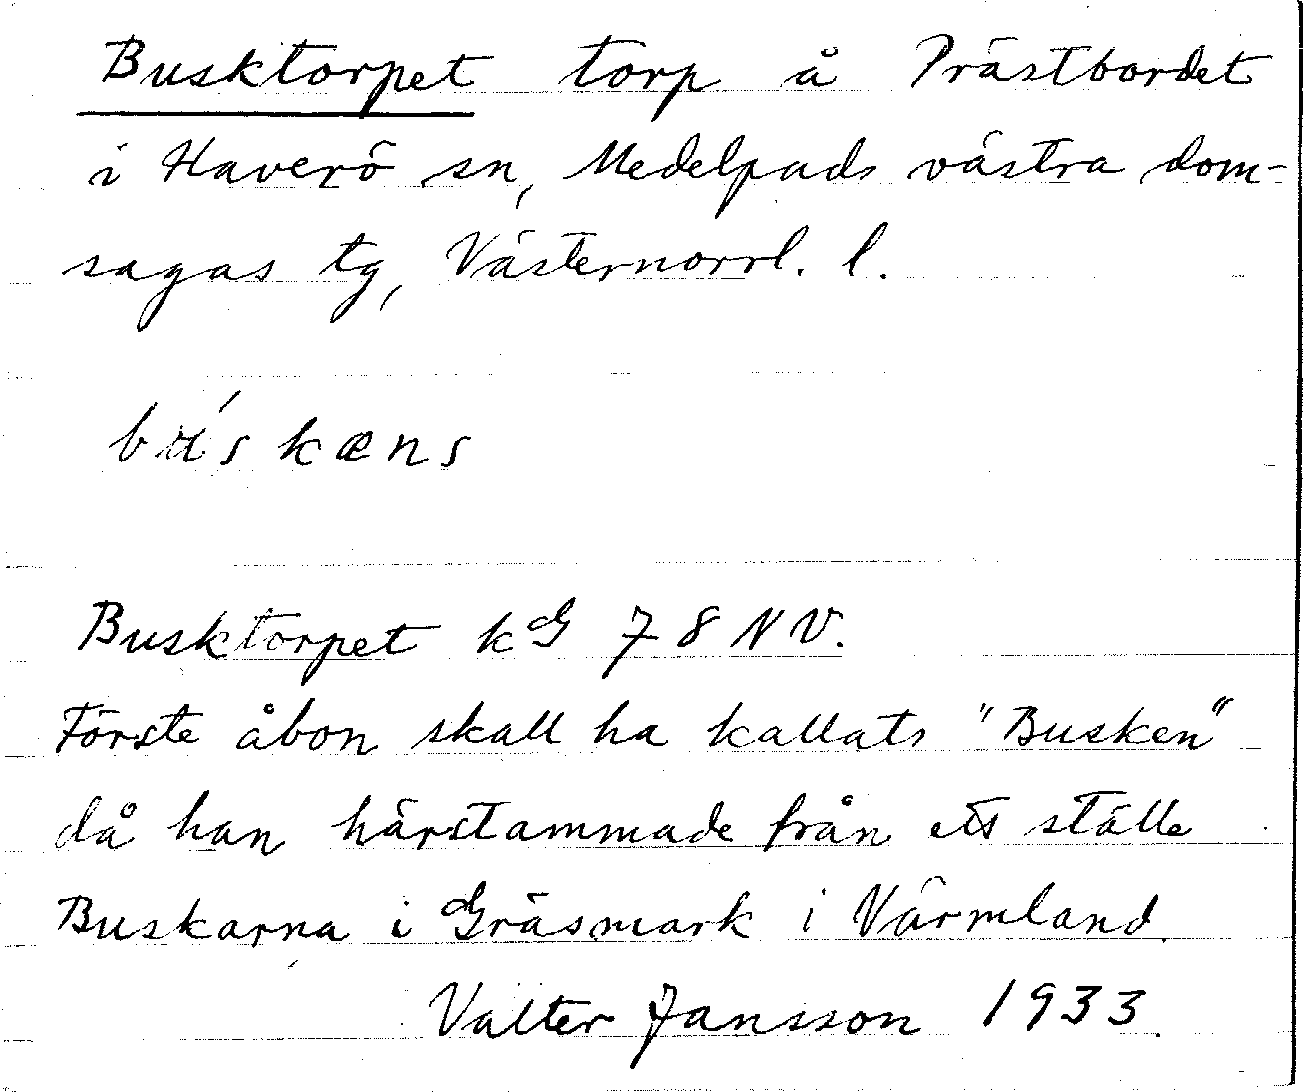 Busktorpet torp å Prästbordet
i Haverö sn, Medelpads västra dom-
sagas tg, Västernorrl. l.
bu̇́skæns
Busktorpet kG 78 NV.
Förste åbon skall ha kallats "Busken"
då han härstammade från ett ställe
Buskarna i Gräsmark i Värmland.
Valter Jansson 1933.